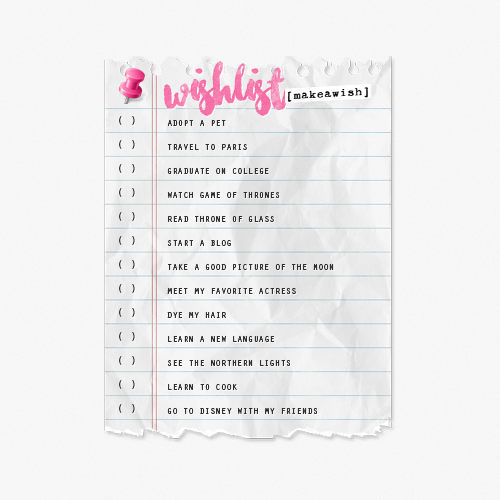 wishlist
[makeawish]
( ) ADOPT A PET
( ) TRAVEL TO PARIS
( ) GRADUATE ON COLLEGE
( ) WATCH GAME OF THRONES
( ) READ THRONE OF GLASS
( ) START A BLOG
( ) TAKE A GOOD PICTURE OF THE MOON
( ) MEET MY FAVORITE ACTRESS
( ) DYE MY HAIR
( ) LEARN A NEW LANGUAGE
( ) SEE THE NORTHERN LIGHTS
( ) LEARN TO COOK
( ) GO TO DISNEY WITH MY FRIENDS